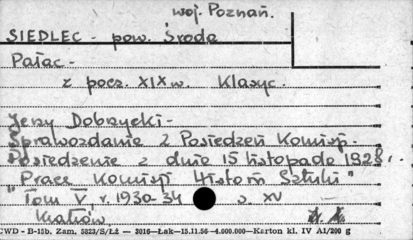 woj. Poznań.
SIEDLEC - pow. Środa
Pałac -
z pocz. XIX w. Klasyc.
Jerzy Dobrzycki -
Sprawozdanie z Posiedzeń Komisji.
Posiedzenie z dnia 15 listopada 1928 r.
"Prace Komisji Historii Sztuki"
Tom V, r. 1930-34 s. XV
Kraków
CWD - B-15b. Zam. 5823/S/Łż — 3016—Łak—15.11.56—4.000.000—Karton kl. IV A1/200 g